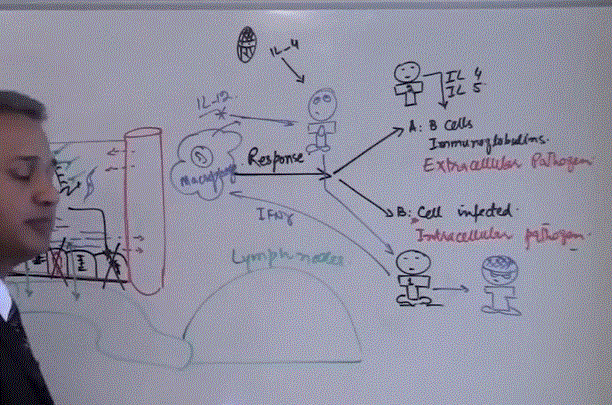 IL-4
IL-12
IL 4
IL 5
A: B Cells
Immunoglobulins.
Extracellular Pathogen
Response
Macrophage
IFNγ
B: Cell infected.
Intracellular pathogen
Lymph nodes